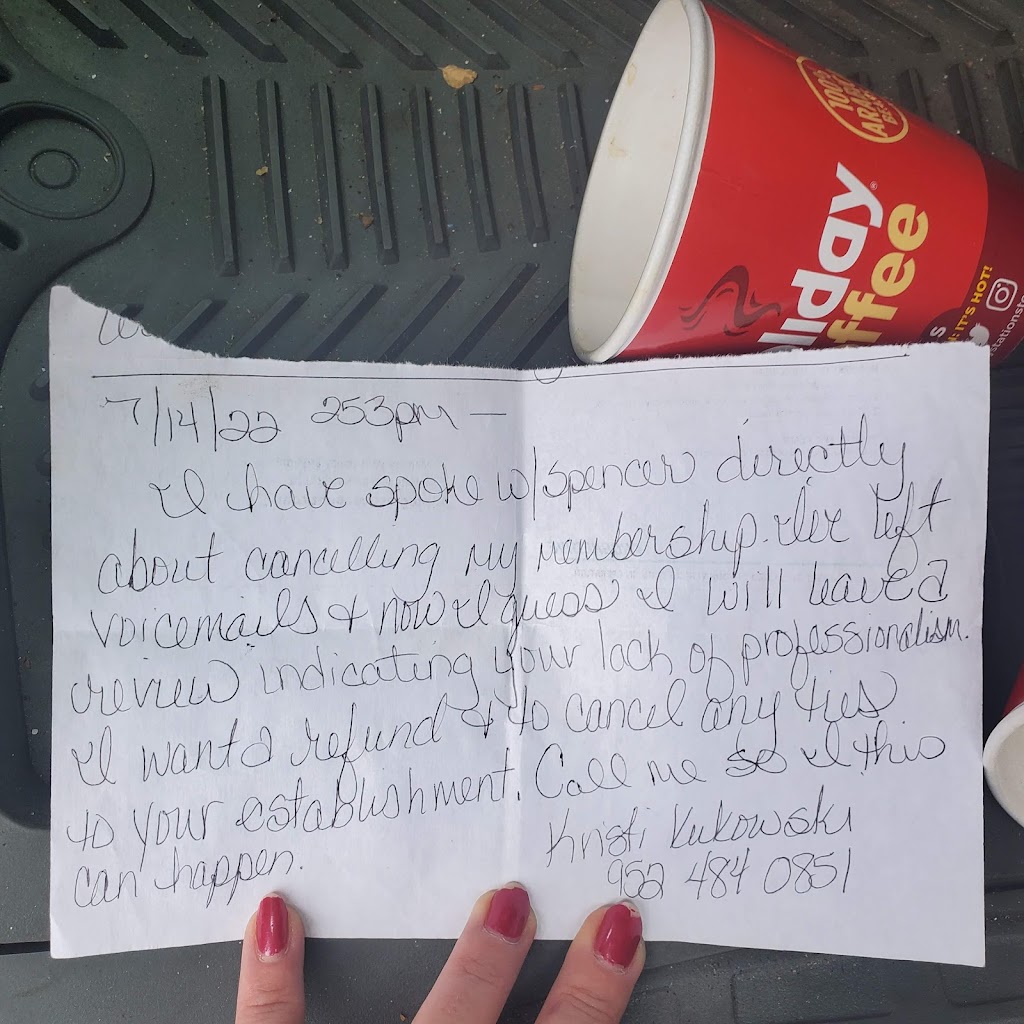 100%
ARA
liday®
ffee
IT'S HOT!
stationsto
7/14/22 253pm —
I have spoke w/spencer directly
about cancelling my membership. I've left
voicemails & now I guess I will leave a
review indicating your lack of professionalism.
I want a refund & to cancel any ties
to your establishment. Call me so I this
can happen.
Kristi Kukowski
952 484 0851